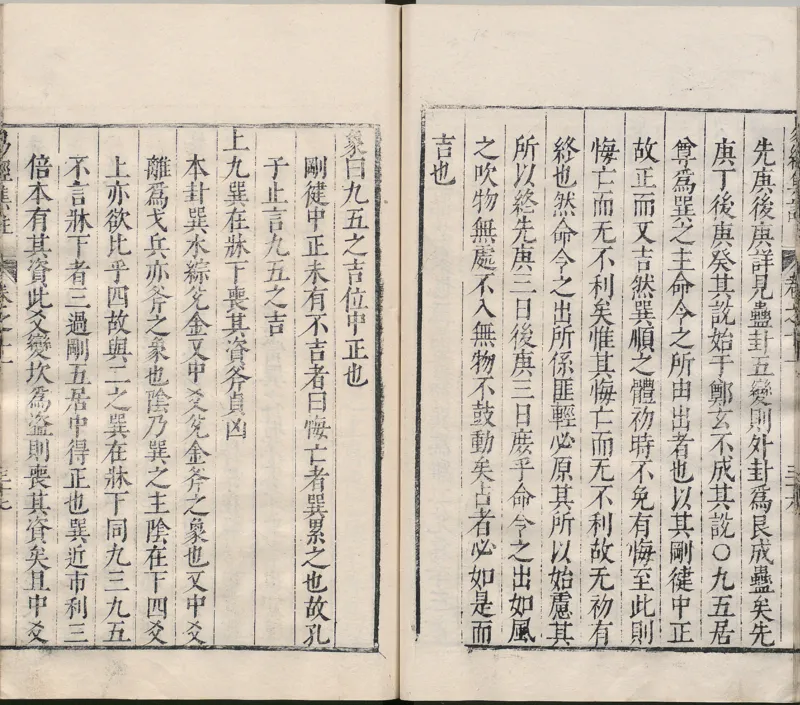 先庚後庚詳見蠱卦五變則外卦為艮成蠱矣先
庚丁後庚癸其說始于鄭玄不成其說○九五居
尊爲巽之主命令之所由出者也以其剛健中正
故正而又吉然巽順之體初時不免有悔至此則
悔亡而无不利矣惟其悔亡而无不利故无初有
終也然命令之出所係匪輕必原其所以始慮其
所以終先庚三日後庚三日庶乎命令之出如風
之吹物無處不入無物不鼓動矣占者必如是而
吉也
象曰九五之吉位中正也
剛健中正未有不吉者曰悔亡者巽累之也故孔
子止言九五之吉
上九巽在牀下喪其資斧貞凶
本卦巽木綜兌金又中爻兌金斧之象也又中爻
離爲戈兵亦斧之象也陰乃巽之主陰在下四爻
上亦欲比乎四故與二之巽在牀下同九三九五
不言牀下者三過剛五居中得正也巽近市利三
倍本有其資此爻變坎爲盜則喪其資矣且中爻
易經集註
卷之十一
三十七